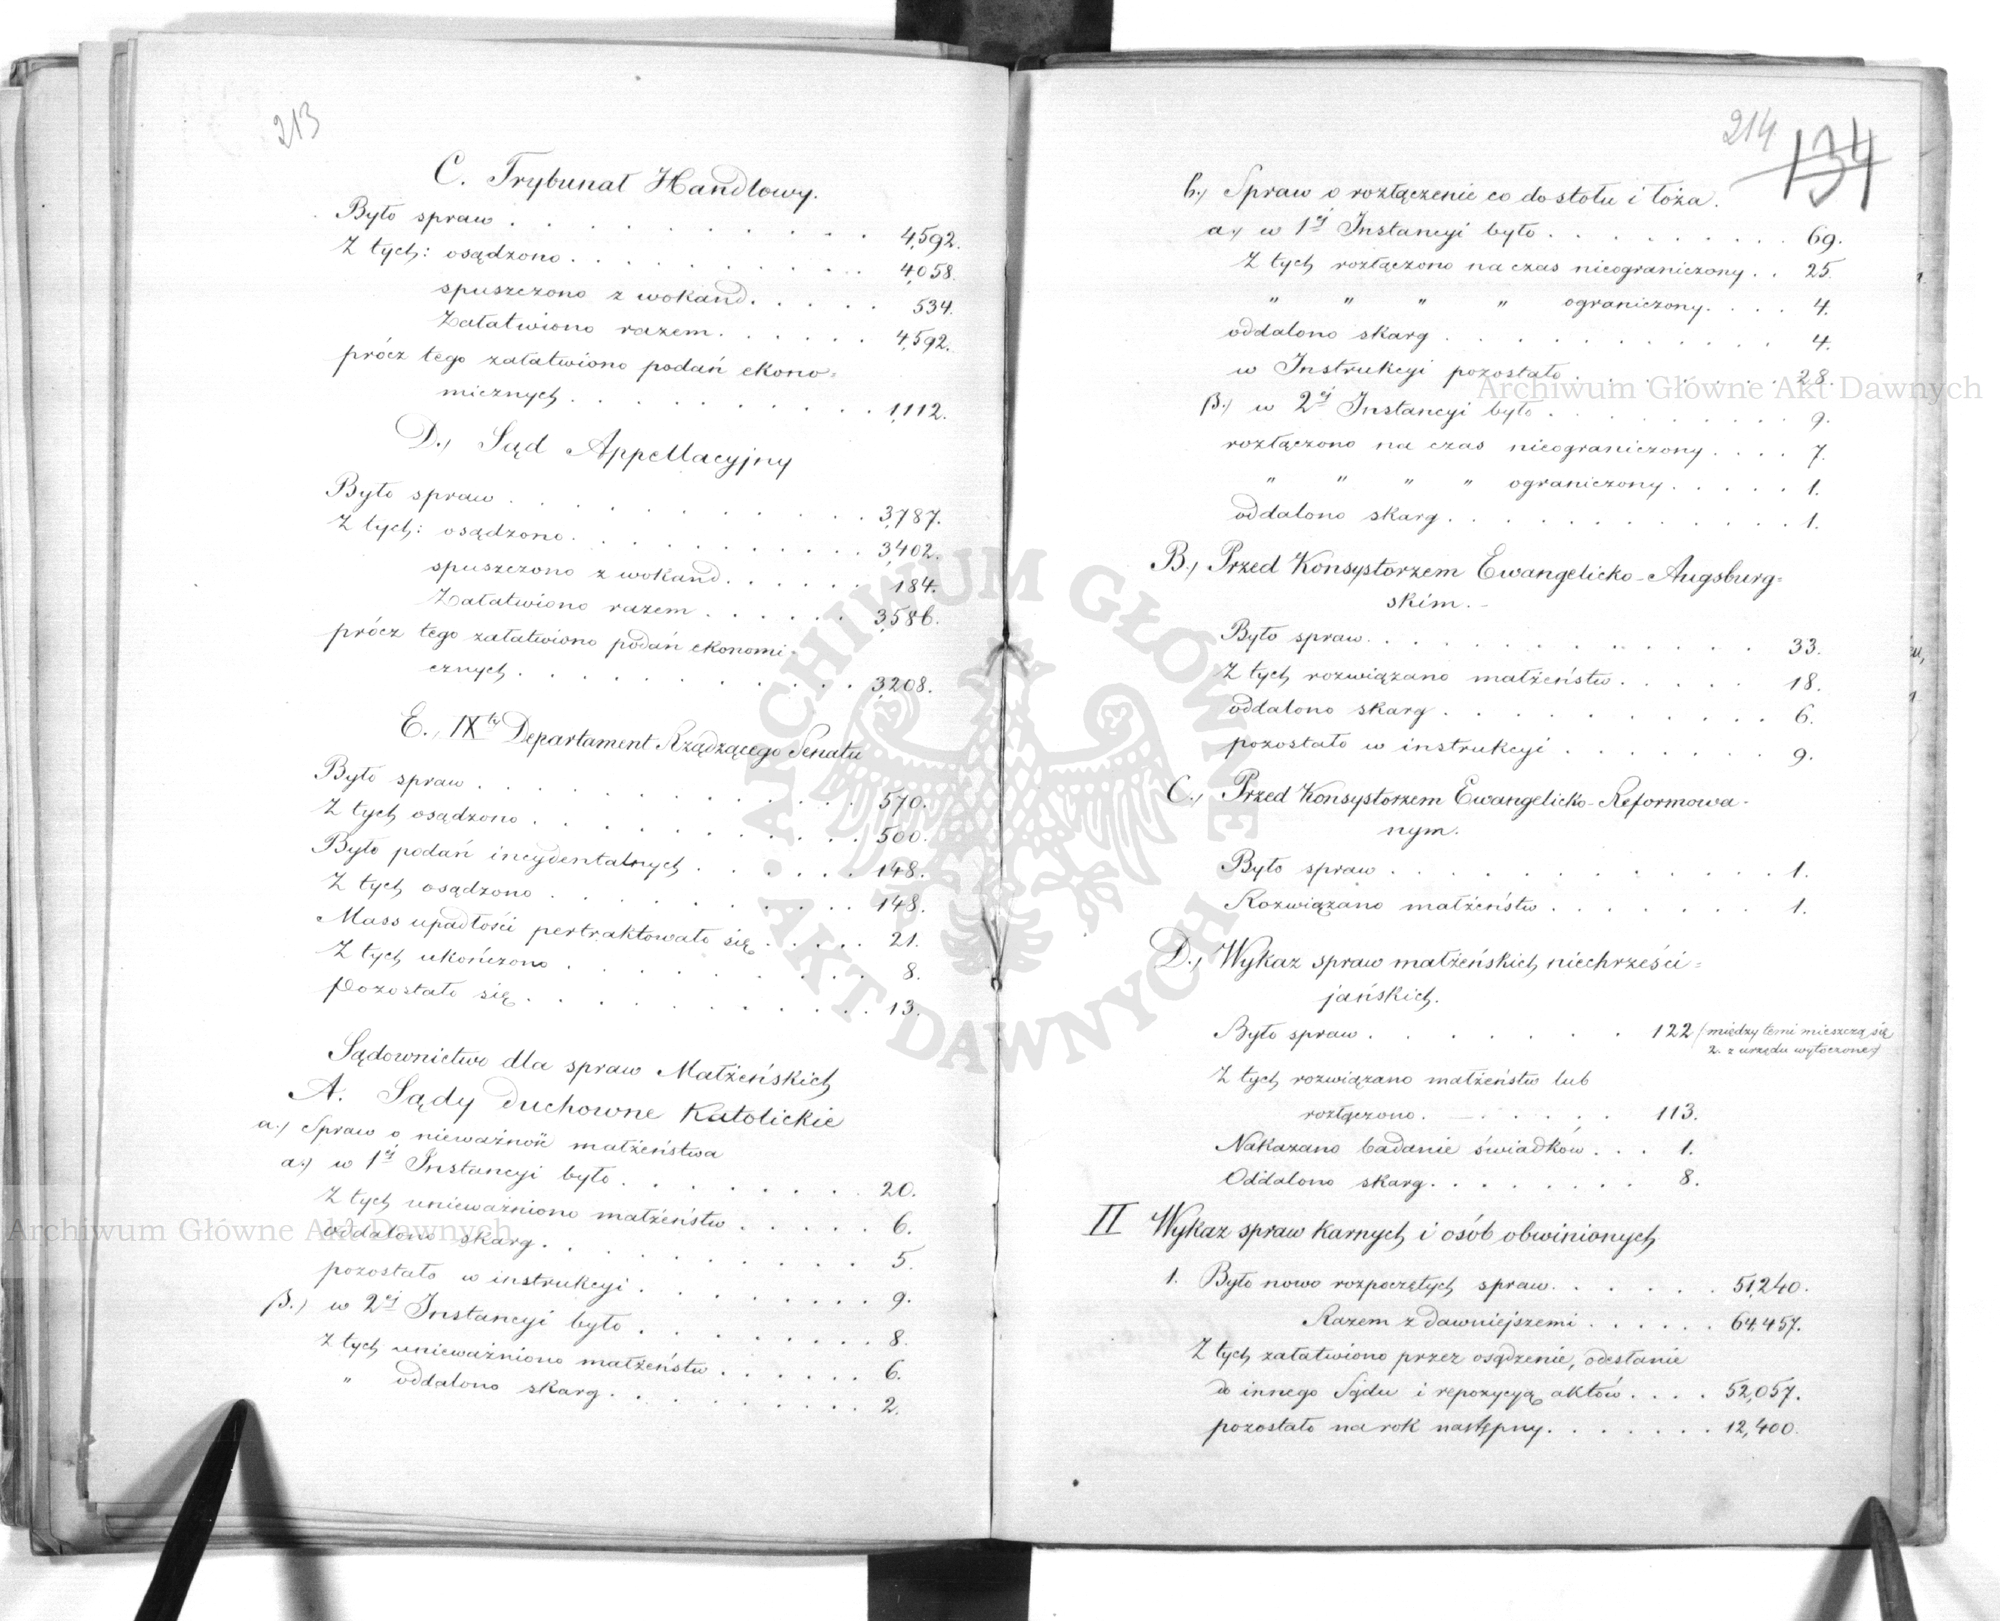 213
C. Trybunał Handlowy.
Było spraw . . . . . . . . . . 4,592.
Z tych: osądzono . . . . . . . . . 4,058.
spuszczono z wokand . . . . . 534.
Załatwiono razem . . . . . . 4,592.
prócz tego załatwiono podań ekono=
micznych . . . . . . . . . . 1,112.
D., Sąd Appellacyjny
Było spraw . . . . . . . . . . 3,787.
Z tych: osądzono . . . . . . . . . 3,402.
spuszczono z wokand . . . . . . 184.
Załatwiono razem . . . . . . 3,586.
prócz tego załatwiono podań ekonomi=
cznych . . . . . . . . . . . 3,208.
E., IXty Departament Rządzącego Senatu
Było spraw . . . . . . . . . . . 570.
Z tych osądzono . . . . . . . . . . 500.
Było podań incydentalnych . . . . . . 148.
Z tych osądzono . . . . . . . . . . 148.
Mass upadłości pertraktowało się . . . . . 21.
Z tych ukończono . . . . . . . . . 8.
Pozostało się . . . . . . . . . . . 13.
Sądownictwo dla spraw Małżeńskich
A. Sądy duchowne Katolickie
a., Spraw o nieważność małżeństwa
α.) w 1éj Instancyi było . . . . . . . . 20.
Z tych unieważniono małżeństw . . . . . 6.
oddalono skarg . . . . . . . . . . 5.
pozostało w instrukcyi . . . . . . . . 9.
β.) w 2éj Instancyi było . . . . . . . . 8.
Z tych unieważniono małżeństw . . . . . . 6.
" oddalono skarg . . . . . . . . 2.
214
134
b., Spraw o rozłączenie co do stołu i łoża.
α.) w 1éj Instancyi było . . . . . . . . . 69.
Z tych rozłączono na czas nieograniczony . . 25.
" " " " ograniczony . . . . 4.
oddalono skarg . . . . . . . . . . . 4.
w Instrukcyi pozostało . . . . . . . . 28.
β.) w 2éj Instancyi było . . . . . . . . . 9.
rozłączono na czas nieograniczony . . . . 7.
" " " " ograniczony . . . . . 1.
oddalono skarg . . . . . . . . . . . . 1.
B., Przed Konsystorzem Ewangelicko-Augsburg=
skim.
Było spraw . . . . . . . . . . . . 33.
Z tych rozwiązano małżeństw . . . . . 18.
oddalono skarg . . . . . . . . . . . 6.
pozostało w instrukcyi . . . . . . . 9.
C., Przed Konsystorzem Ewangelicko-Reformowa-
nym.
Było spraw . . . . . . . . . . . . . 1.
Rozwiązano małżeństw . . . . . . . 1.
D., Wykaz spraw małżeńskich niechrześci=
jańskich.
Było spraw . . . . . . . . 122 (między temi mieszczą się
2. z urzędu wytoczone)
Z tych rozwiązano małżeństw lub
rozłączono . . . . . . . 113.
Nakazano badanie świadków . . . 1.
Oddalono skarg . . . . . . . . 8.
II Wykaz spraw karnych i osób obwinionych
1. Było nowo rozpoczętych spraw . . . . . . 51,240.
Razem z dawniejszemi . . . . . . 64,457.
Z tych załatwiono przez osądzenie, odesłanie
do innego Sądu i repozycyą aktów . . . . 52,057.
pozostało na rok następny . . . . . . . 12,400.
Archiwum Główne Akt Dawnych
Archiwum Główne Akt Dawnych
· ARCHIWUM GŁÓWNE · AKT DAWNYCH